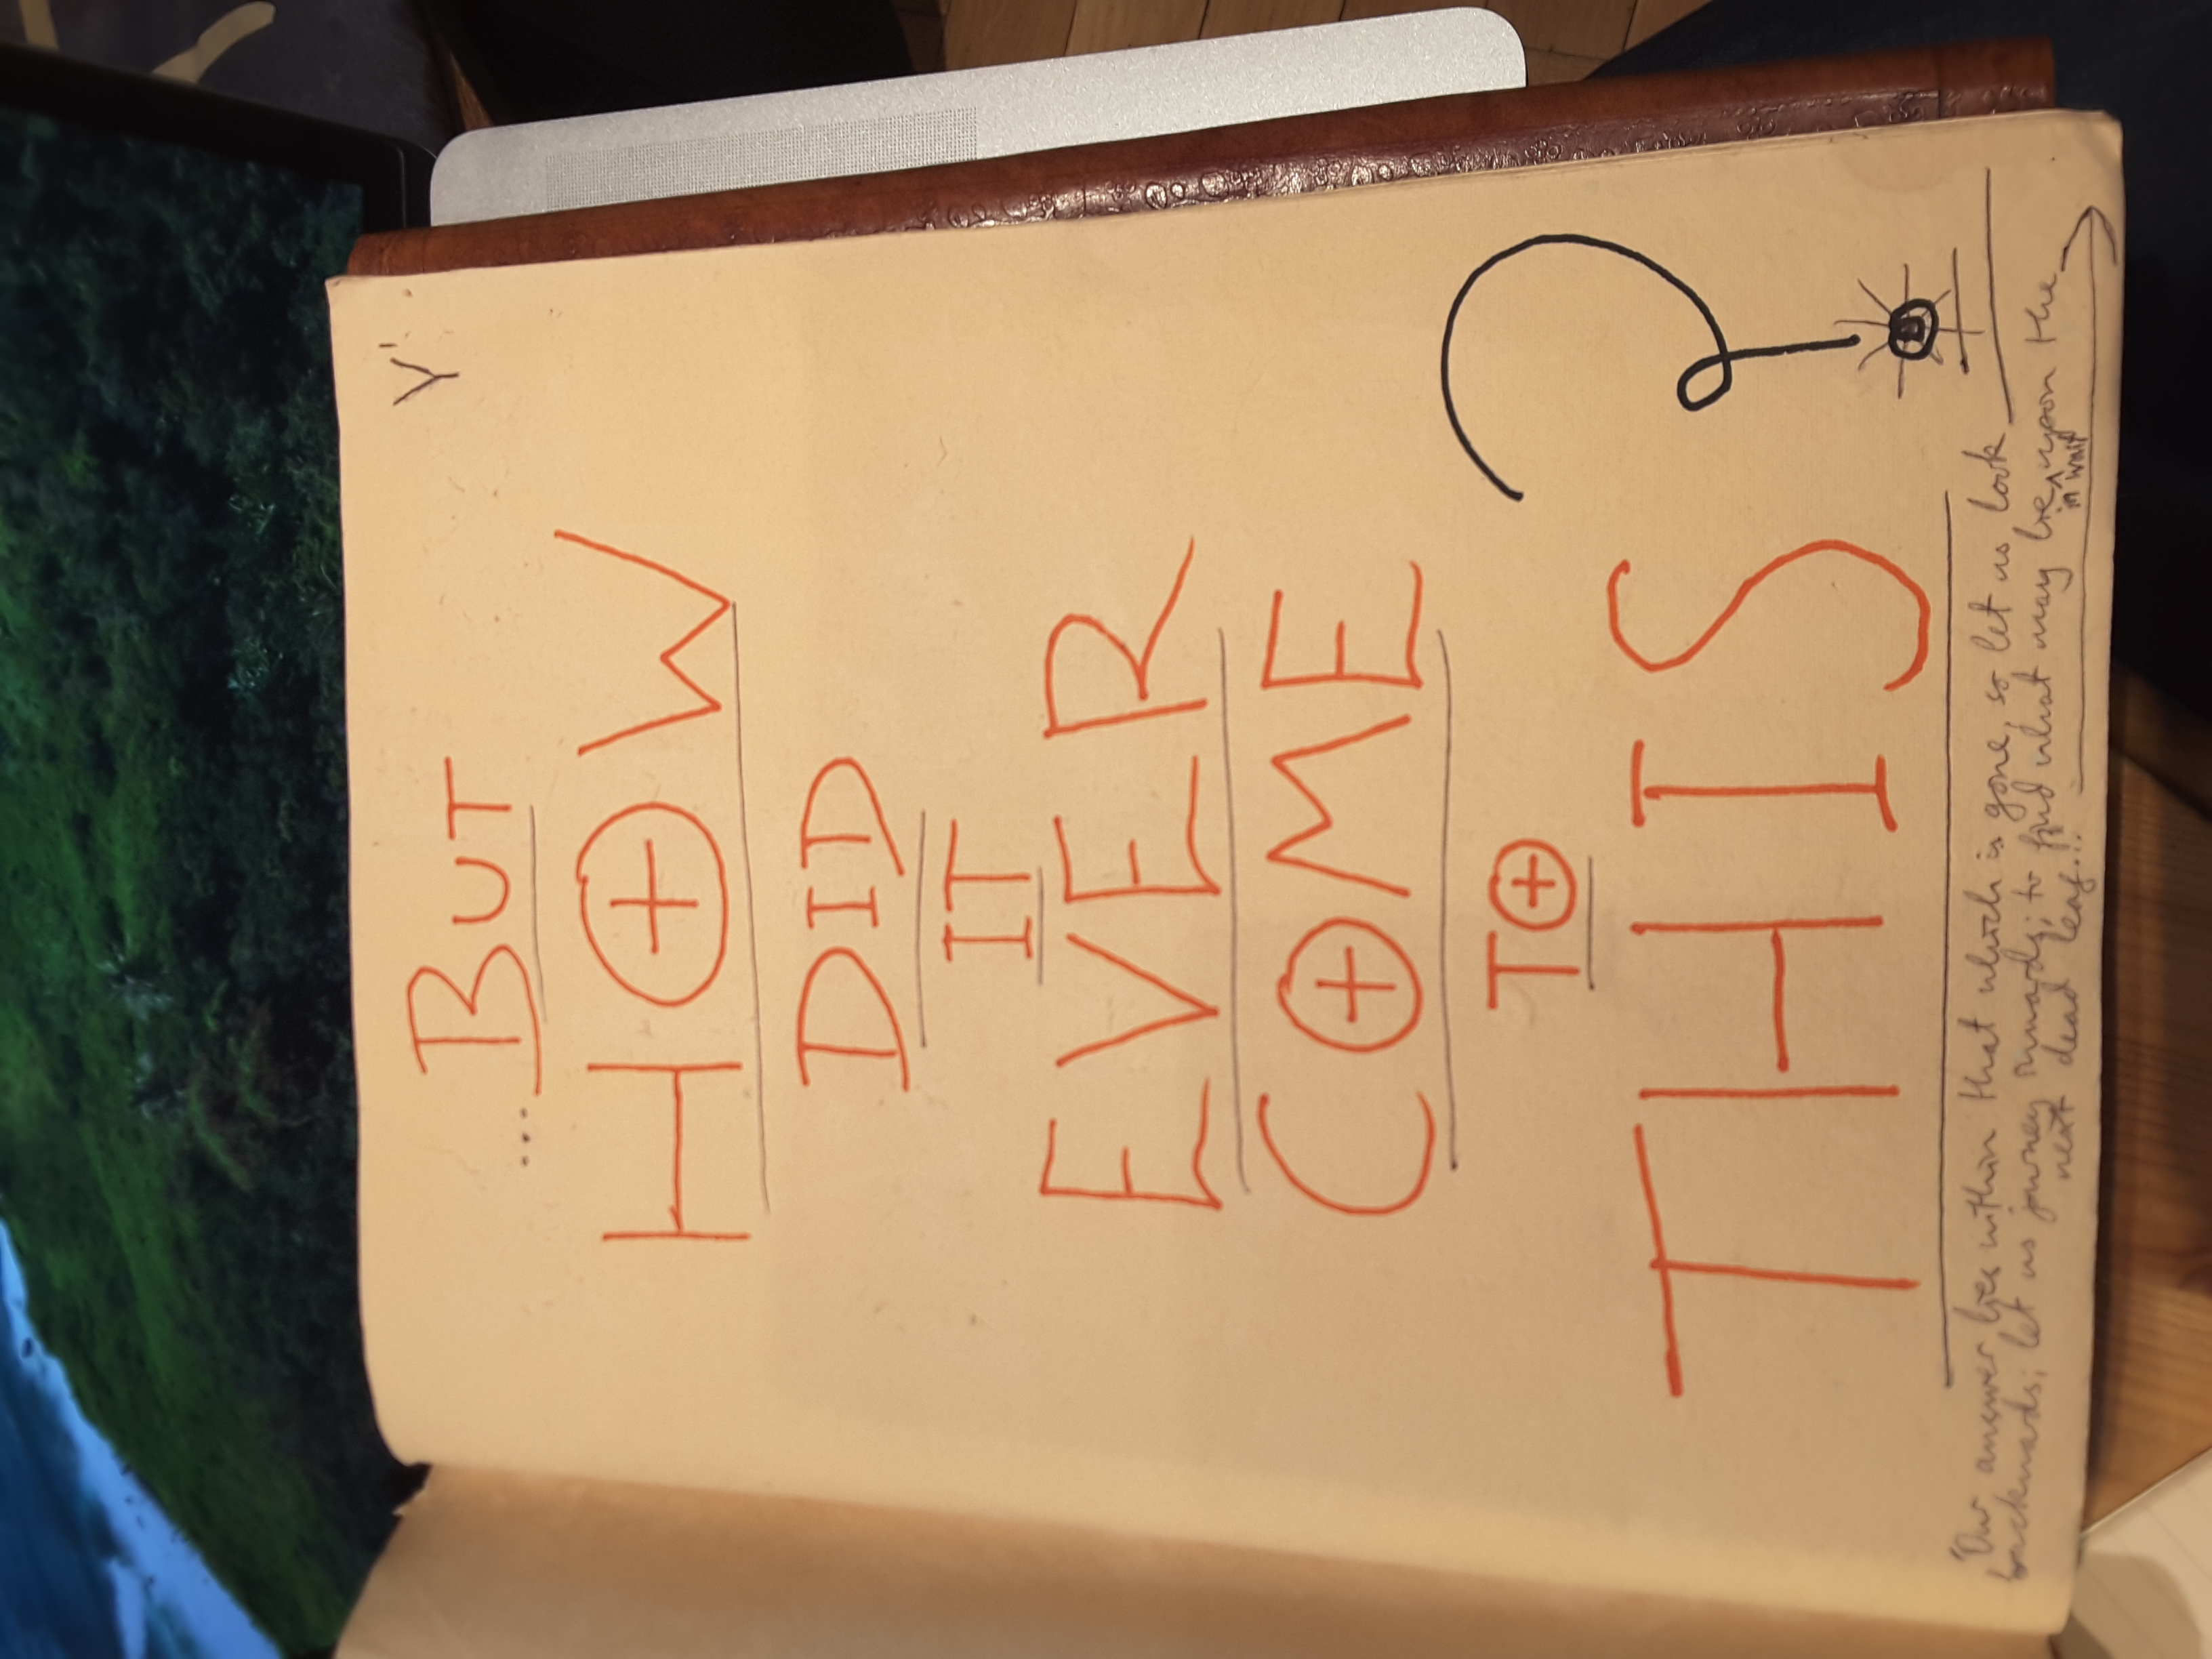 Y'
...BUT
HOW
DID
IT
EVER
COME
TO
THIS?
"Our answer lies within that which is gone, so let us look
backwards; let us journey inwards; to find what may lie in wait upon the
next dead leaf..."